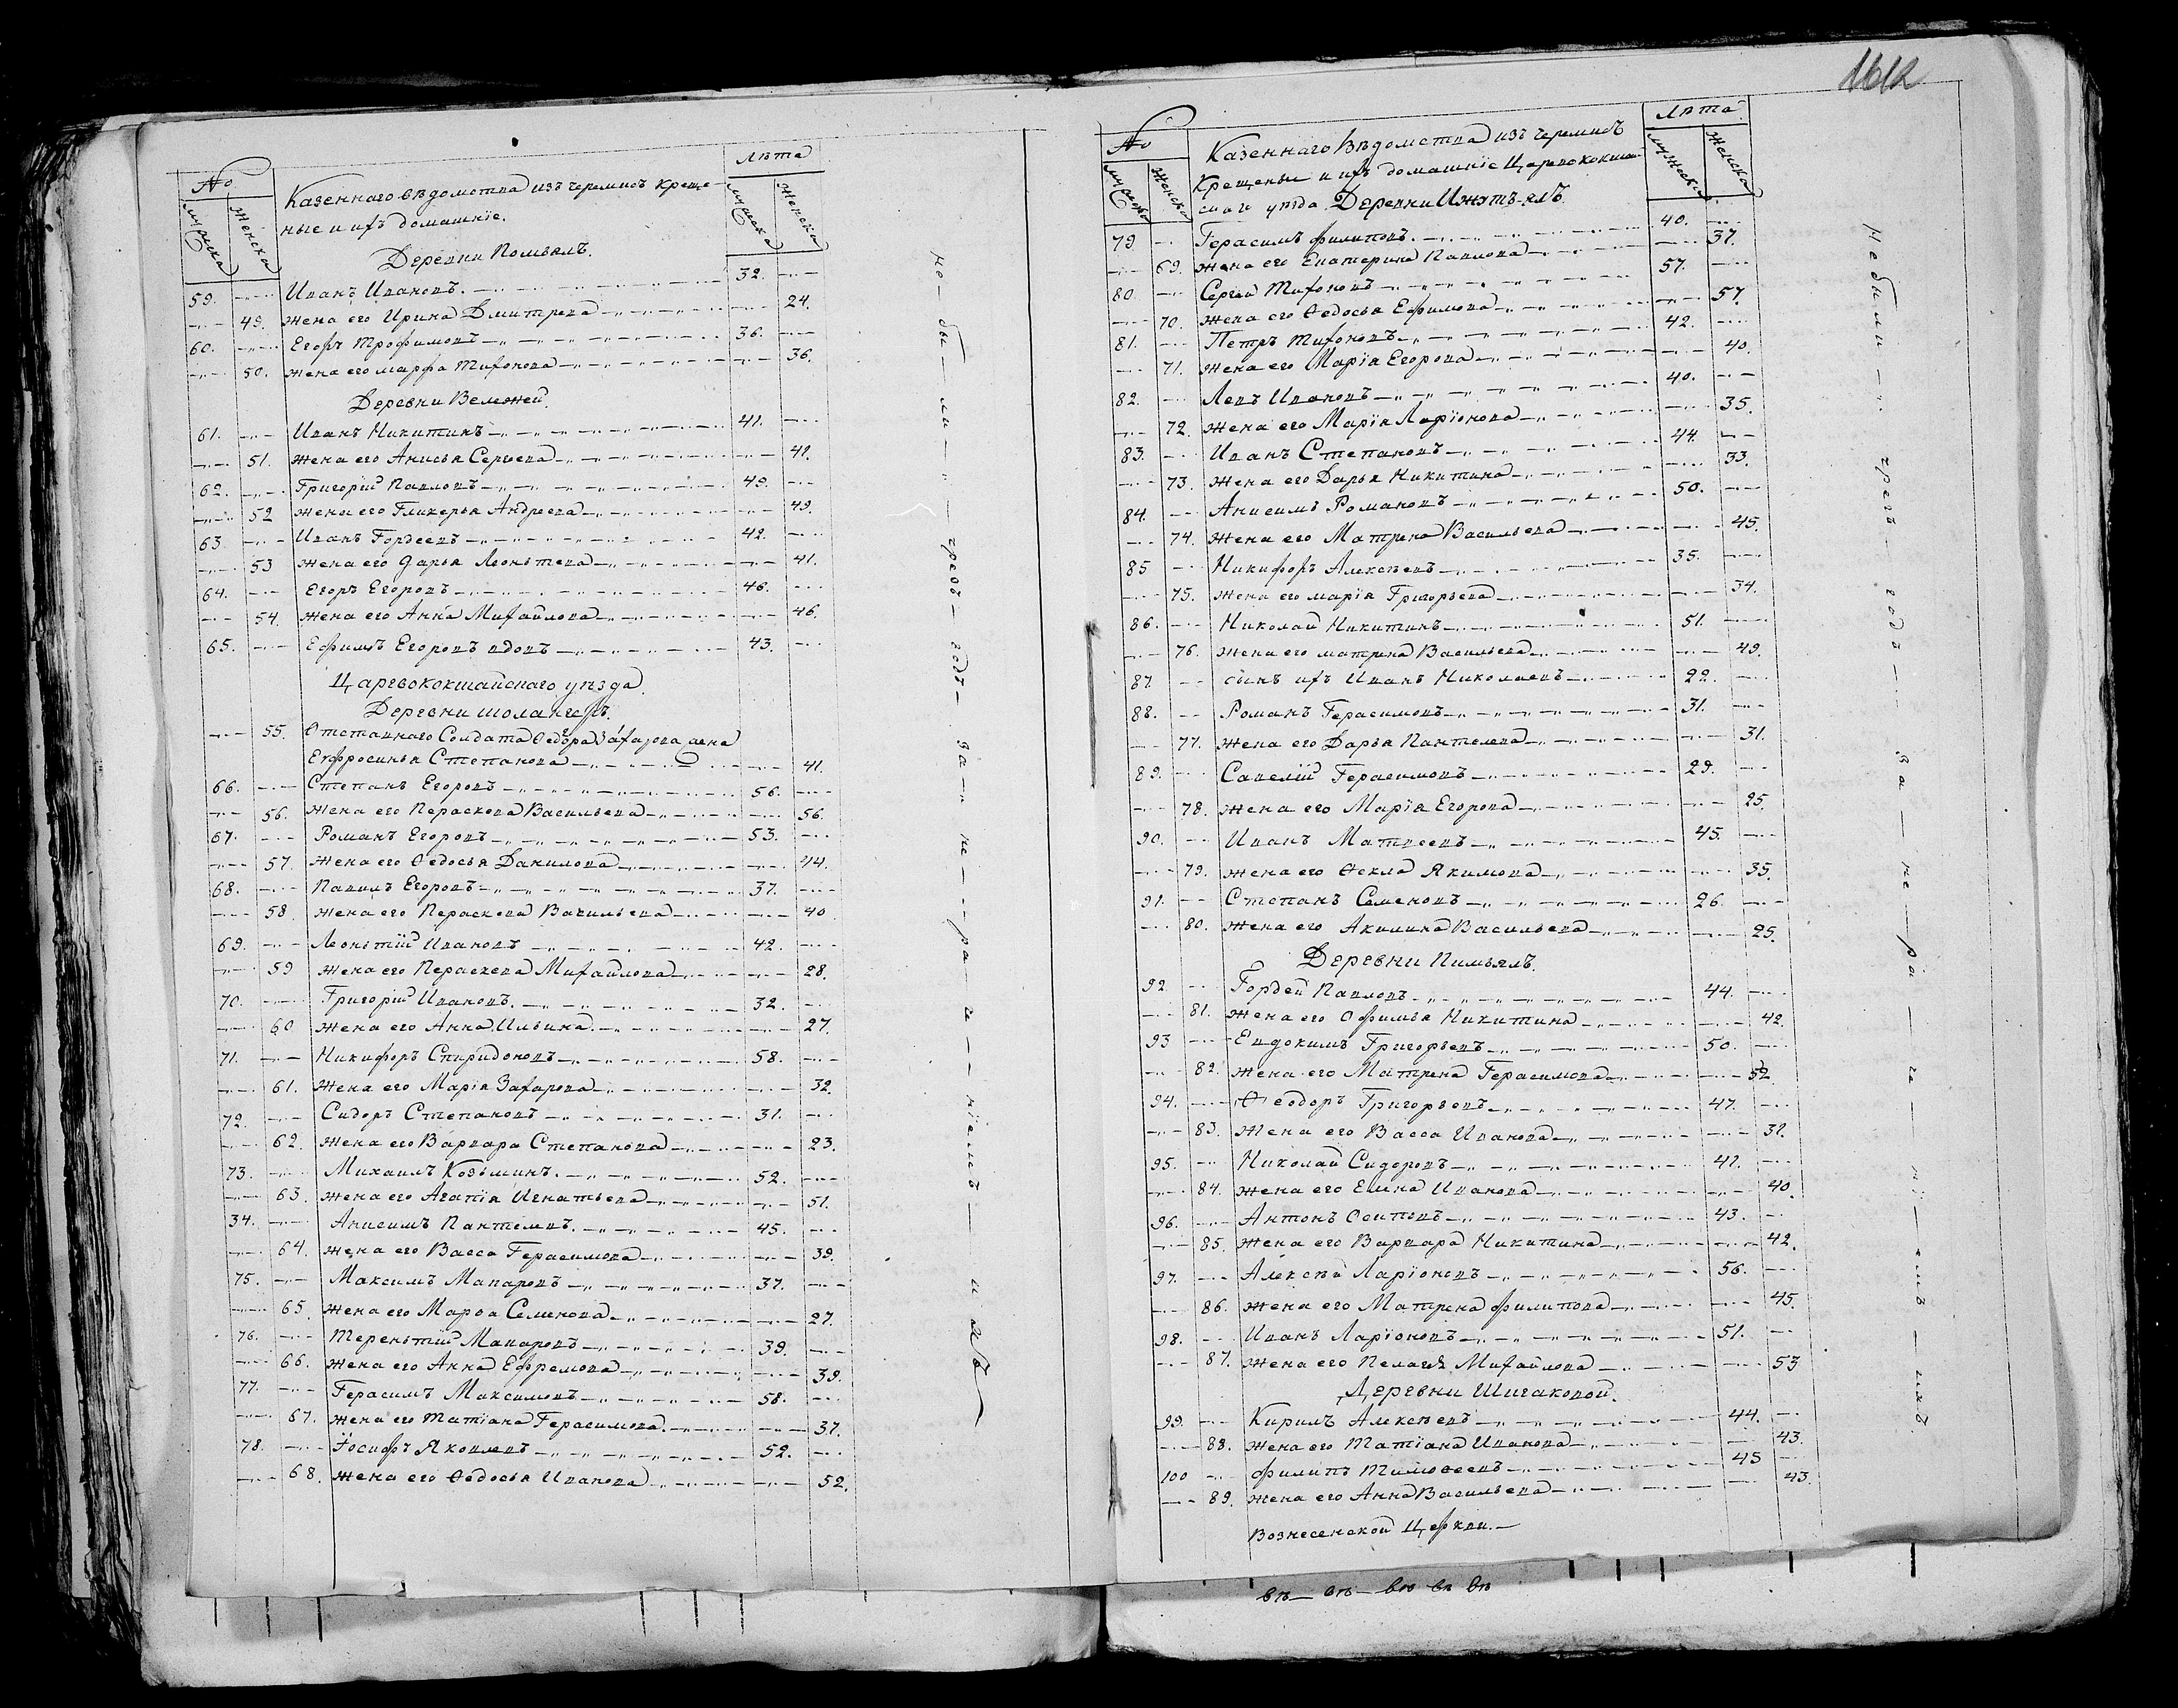 № Казеннаго вѣдомства изъ черемисъ креще- Лѣта
мужеска женска ные и ихъ домашніе. мужеска женска
Деревни Помъялъ.
59. Иванъ Ивановъ. 32.
49. жена его Ирина Дмитрева 24.
60. Егоръ Трофимовъ 36.
50. жена его марфа Тихонова 36.
Деревни
61. Иванъ Никитинъ 41.
51. жена его Анисья Сергеева 42.
62. Григорій Павловъ 49.
52 жена его Гликерья Андреева 49.
63. Иванъ Гордеевъ 42.
53 жена его дарья Леонътева 41.
64. Егоръ Егоровъ 46.
54. жена его Анна Михайлова 46.
65. Ефимъ Егоровъ вдовъ 43.
Царевококшайскаго уѣзда.
Деревни
55. Отставнаго Солдата Ѳедора Захарова жена
Евфросинья Степанова 41.
66. Степанъ Егоровъ 56.
56. жена его Пераскева Васильева 56.
67. Романъ Егоровъ 53.
57. жена его Ѳедосья Данилова 44.
68. Павилъ Егоровъ 37.
58. жена его Пераскева Васильева 40.
69. Леонътій Ивановъ 42.
59 жена его Пераскева Михайлова 28.
70. Григорій Ивановъ. 32.
60 жена его Анна Ильина. 27.
71. Никифоръ Спиридоновъ 58.
61. жена его Марія Захарова 32.
72. Сидоръ Степановъ 31.
62. жена его Варвара Степанова 23.
73. Михаилъ Козьминъ. 52.
63. жена его Агапія Игнатьева 51.
34. Анисимъ Пантелевъ. 45.
64. жена его Васса Герасимова 39.
75. Максимъ Макаровъ 37.
65. жена его Марѳа Семенова 27.
76. Теренътій Макаровъ 39.
66. жена его Анна Ефремова 39.
77. Герасимъ Максимовъ 58.
67. жена его Татіана Герасимова. 37.
78. Іосифъ Яковлевъ 52.
68. жена его Ѳедосья Иванова 52.
не были чрезъ годъ за не ра че ніемъ
1612
№ Казеннаго Вѣдомства изъ черемисъ Лѣта
мужеска женска Крещеные и ихъ домашніе Царевококшай- мужеска женска
скаго уѣзда Деревни Ижутъ-ялъ.
79 Герасимъ филиповъ. 40.
69. жена его Екатерина Павлова 37.
80. Сергей Тихоновъ 57.
70. жена его Ѳедосья Ефимова 57.
81. Петръ Тихоновъ 42.
71. жена его Марія Егорова 40.
82. Левъ Ивановъ 40.
72. жена его Марія Ларіонова 35.
83. Иванъ Степановъ 44.
73. жена его Дарья Никитина 33.
84. Анисимъ Романовъ 50.
74. жена его Матрена Васильева 45.
85 Никифоръ Алексѣевъ 35.
75. жена его марія Григорьева 34.
86. Николай Никитинъ 51.
76. жена его матрена Васильева 49.
87. сынъ ихъ Иванъ Николаевъ 22.
88. Романъ Герасимовъ 31.
77. жена его Дарья Пантелева 31.
89. Савелій Герасимовъ 29.
78. жена его Марія Егорова 25.
90. Иванъ Матвеевъ 45.
79. жена его Ѳекла Якимова 35.
91. Степанъ Семеновъ 26.
80. жена его Акилина Васильева 25.
Деревни Пимъялъ.
92 Гордей Павловъ 44.
81. жена его Офимья Никитина 42.
93 Евдокимъ Григорьевъ 50.
82. жена его Матрена Герасимова 52.
94. Ѳеодоръ Григорьевъ 47.
83. жена его Васса Иванова 32.
95. Николай Сидоровъ 42.
84. жена его Елена Иванова 40.
96. Антонъ Осиповъ 43.
85. жена его Варвара Никитина 42.
97. Алексѣй Ларіоновъ 56.
86. жена его Матрена филипова 45.
98. Иванъ Ларіоновъ 51.
87. жена его Пелагѣя Михайлова 53
Деревни Шигаковой.
99. Кирилъ Алексѣевъ 44.
88. жена его Татіана Иванова 43.
100 филипъ Тимоѳеевъ 45
89. жена его Анна Васильева 43.
Вознесенской Церкви.
Небыли чрезъ годъ за не ра че ні емъ ихъ.
въ въ въ въ въ